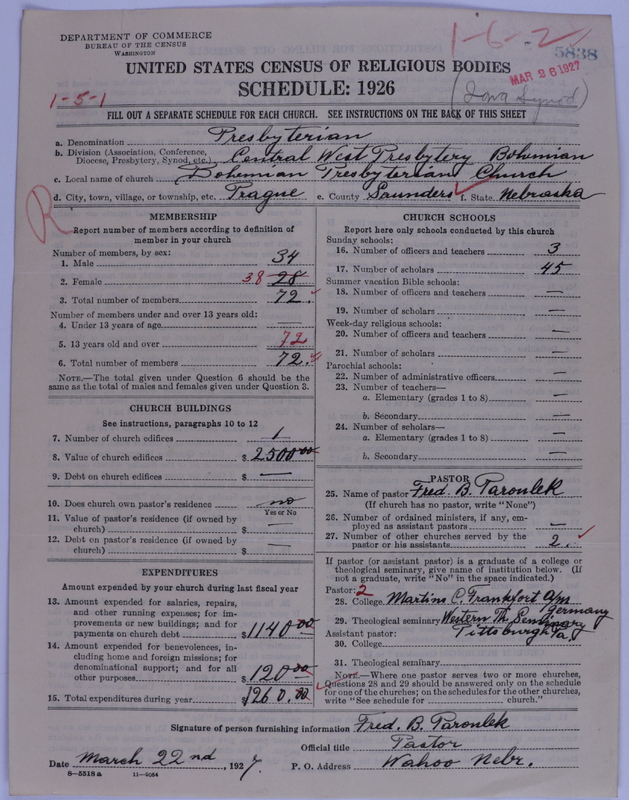 DEPARTMENT OF COMMERCE
BUREAU OF THE CENSUS
WASHINGTON
1-6-2
5838
MAR 26 1927
UNITED STATES CENSUS OF RELIGIOUS BODIES
SCHEDULE: 1926
1-5-1
(Iowa Synod)
FILL OUT A SEPARATE SCHEDULE FOR EACH CHURCH. SEE INSTRUCTIONS ON THE BACK OF THIS SHEET
a. Denomination Presbyterian
b. Division (Association, Conference, Diocese, Presbytery, Synod, etc.) Central West Presbytery Bohemian
c. Local name of church Bohemian Presbyterian Church
d. City, town, village, or township, etc. Prague e. County Saunders f. State Nebraska
R
MEMBERSHIP
Report number of members according to definition of
member in your church
Number of members, by sex:
1. Male 34
2. Female 38 28
3. Total number of members 72.
Number of members under and over 13 years old:
4. Under 13 years of age —
5. 13 years old and over 72
6. Total number of members 72.
NOTE.—The total given under Question 6 should be the
same as the total of males and females given under Question 3.
CHURCH BUILDINGS
See instructions, paragraphs 10 to 12
7. Number of church edifices 1
8. Value of church edifices $ 2500.00
9. Debt on church edifices $ —
10. Does church own pastor's residence no
Yes or No
11. Value of pastor's residence (if owned by
church) $ —
12. Debt on pastor's residence (if owned by
church) $ —
EXPENDITURES
Amount expended by your church during last fiscal year
13. Amount expended for salaries, repairs,
and other running expenses; for im-
provements or new buildings; and for
payments on church debt $ 1140.00
14. Amount expended for benevolences, in-
cluding home and foreign missions; for
denominational support; and for all
other purposes $ 120.00
15. Total expenditures during year $ 1260.00
CHURCH SCHOOLS
Report here only schools conducted by this church
Sunday schools:
16. Number of officers and teachers 3
17. Number of scholars 45
Summer vacation Bible schools:
18. Number of officers and teachers —
19. Number of scholars —
Week-day religious schools:
20. Number of officers and teachers —
21. Number of scholars —
Parochial schools:
22. Number of administrative officers —
23. Number of teachers—
a. Elementary (grades 1 to 8) —
b. Secondary —
24. Number of scholars—
a. Elementary (grades 1 to 8) —
b. Secondary —
PASTOR
25. Name of pastor Fred. B. Paroulek
(If church has no pastor, write "None")
26. Number of ordained ministers, if any, em-
ployed as assistant pastors —
27. Number of other churches served by the
pastor or his assistants 2.
If pastor (or assistant pastor) is a graduate of a college or
theological seminary, give name of institution below. (If
not a graduate, write "No" in the space indicated.)
Pastor: 2
28. College Martins C. Frankfort a/m Germany
29. Theological seminary Western Th. Seminary
Assistant pastor: Pittsburgh Pa.
30. College
31. Theological seminary
NOTE.—Where one pastor serves two or more churches,
Questions 28 and 29 should be answered only on the schedule
for one of the churches; on the schedules for the other churches,
write "See schedule for church."
Signature of person furnishing information Fred. B. Paroulek
Official title Pastor
Date March 22nd, 1927. P. O. Address Wahoo Nebr.
8—5518a 11—9054